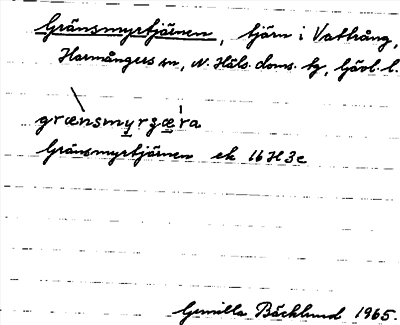 Gränsmyrtjärnen, tjärn i Vattrång,
Harmångers sn, N. Häls. doms. tg, Gävl. l.
grænsmyrʒæra
Gränsmyrtjärnen ek 16H3c
Gunilla Bäcklund 1965.